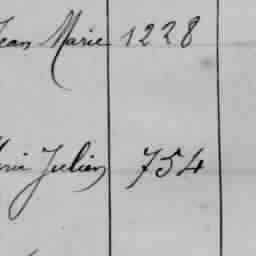 Jean Marie 1228
Julien 754